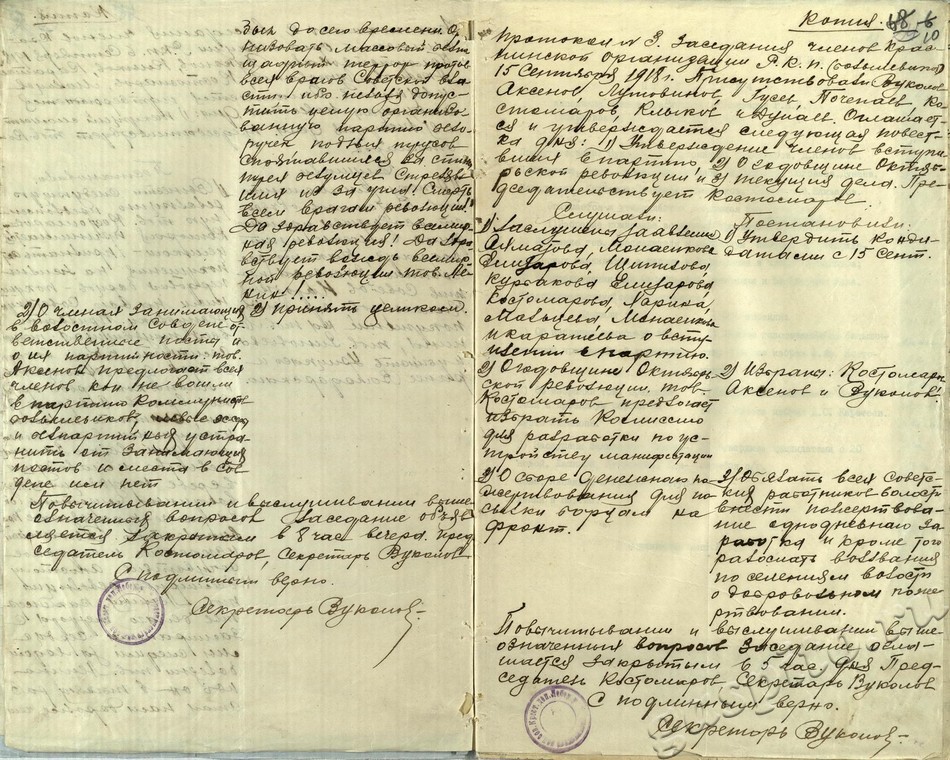 зых до сего времени. Ор
низовать массовый бес
щадный террор против
всех врагов Советской вла
сти ибо нельзя допус-
тить целую организо
ванную партию бело
ручек подлых трусов
спрятавшихся за спи
трех безумцев стреляв
ших из за угла. Смерть
всем врагам революции!
Да здравствует всемир
ная революция! Да здра
вствует вождь всемир
ной революции тов. Ле
нин!.....
2) О членах занимающих
в волостном Совдепе от
ветственные посты и
о их партийности: тов.
Аксенов предлагает всех
членов кои не вошли
в партию Коммунистов
большевиков, левые эсеры
и безпартийные устра
нить от занимающих
постов и места в Сов
депе или нет
2) принять целиком.
По вычитывании и выслушивании выше
означенных вопросов заседание объяв
ляется закрытым в 8 час. вечера. пред
седатель Костомаров, Секретарь Вуколов
С подлинным верно.
Секретарь Вуколов
Копия.
10
Протокол № 3. Заседания членов Крас
нинской организации Р.К.П. (большевиков)
15 Сентября 1918 г. Присутствовали Вуколов
Аксенов, Лутовинов, Гусев, Почепаев, Ко
стомаров, Клыков и Дунаев. Оглашает-
ся и утверждается следующая повест-
ка дня: 1) Утверждение членов вступи
вших в партию, 2) О годовщине Октяб-
рьской революции и 3) текущия дела. Пре-
дседательствует Костомаров.
Слушали:
1) Заслушано заявление
Алматова, Монаенкова
Елизарова, Щитихова,
Курбакова Елизарова
Костомарова, Ларина,
Матвеева, Монаенкова
и Каратеева о всту-
плении в партию.
Постановили:
1) Утвердить канди-
датами с 15 Сент.
2) О годовщине Октябрь-
ской революции. тов.
Костомаров предлагает
избрать Комиссию
для разработки по ус-
тройству манифестации
2) Избраны: Костомаров
Аксенов и Вуколов.
2) О сборе денежного по-
жертвования для по
сылки борцам на
фронт.
2) Обязать всех Советс-
ких работников волости
внести пожертвова-
ние однодневного за
работка и кроме того
разослать воззвания
по селениям волости
о добровольном поже
ртвовании.
По вычитывании и выслушивании выше
означенных вопросов заседание огла-
шается закрытым в 5 час. дня Пред-
седатель Костомаров Секретарь Вуколов
С подлинным верно.
Секретарь Вуколов